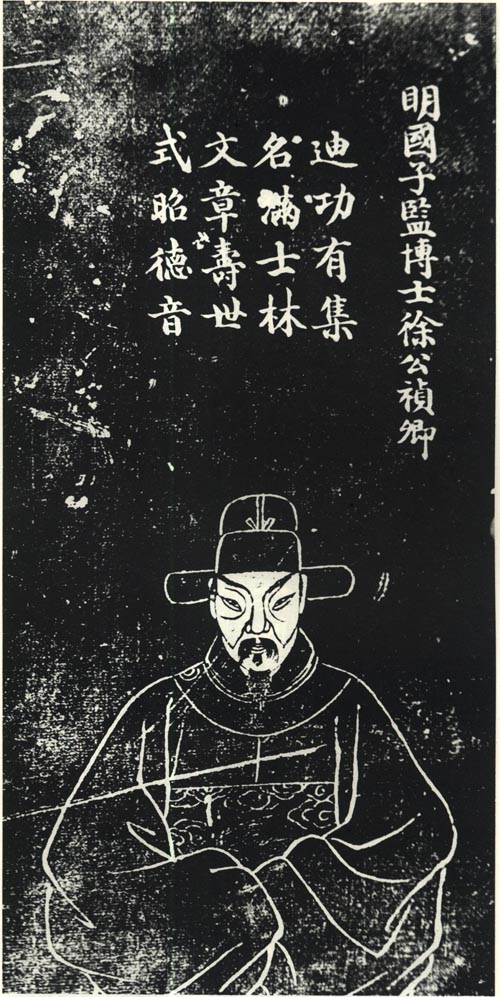 明國子監博士徐公禎卿
迪功有集
名滿士林
文章壽世
式昭德音